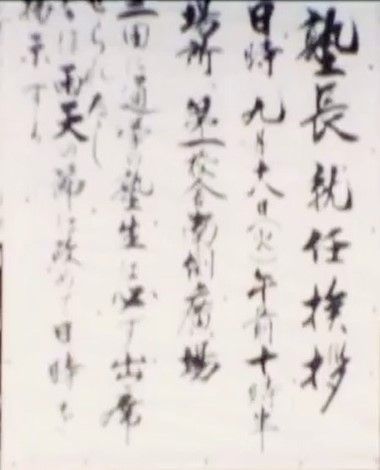 塾長就任挨拶
日時 九月十八日(火)午前十時半
場所 第一校舎南側廣場
三田に通学の塾生は必ず出席
せられたし
なほ雨天の節は改めて日時を
掲示する